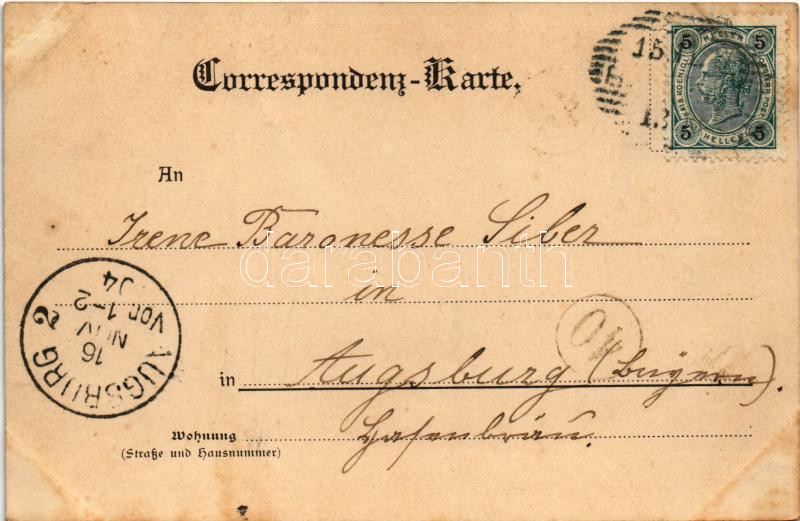 Correspondenz-Karte.
15
13
5 HELLER 5
KAIS. KOENIGL. OESTERR. POST
5 HELLER 5
An
Irene Baronesse Siber
darabanth
in
AUGSBURG 2
16 NOV
Vor. 1-2
04
40
in Augsburg (Bayern).
Wohnung Hasenbräu.
(Straße und Hausnummer)